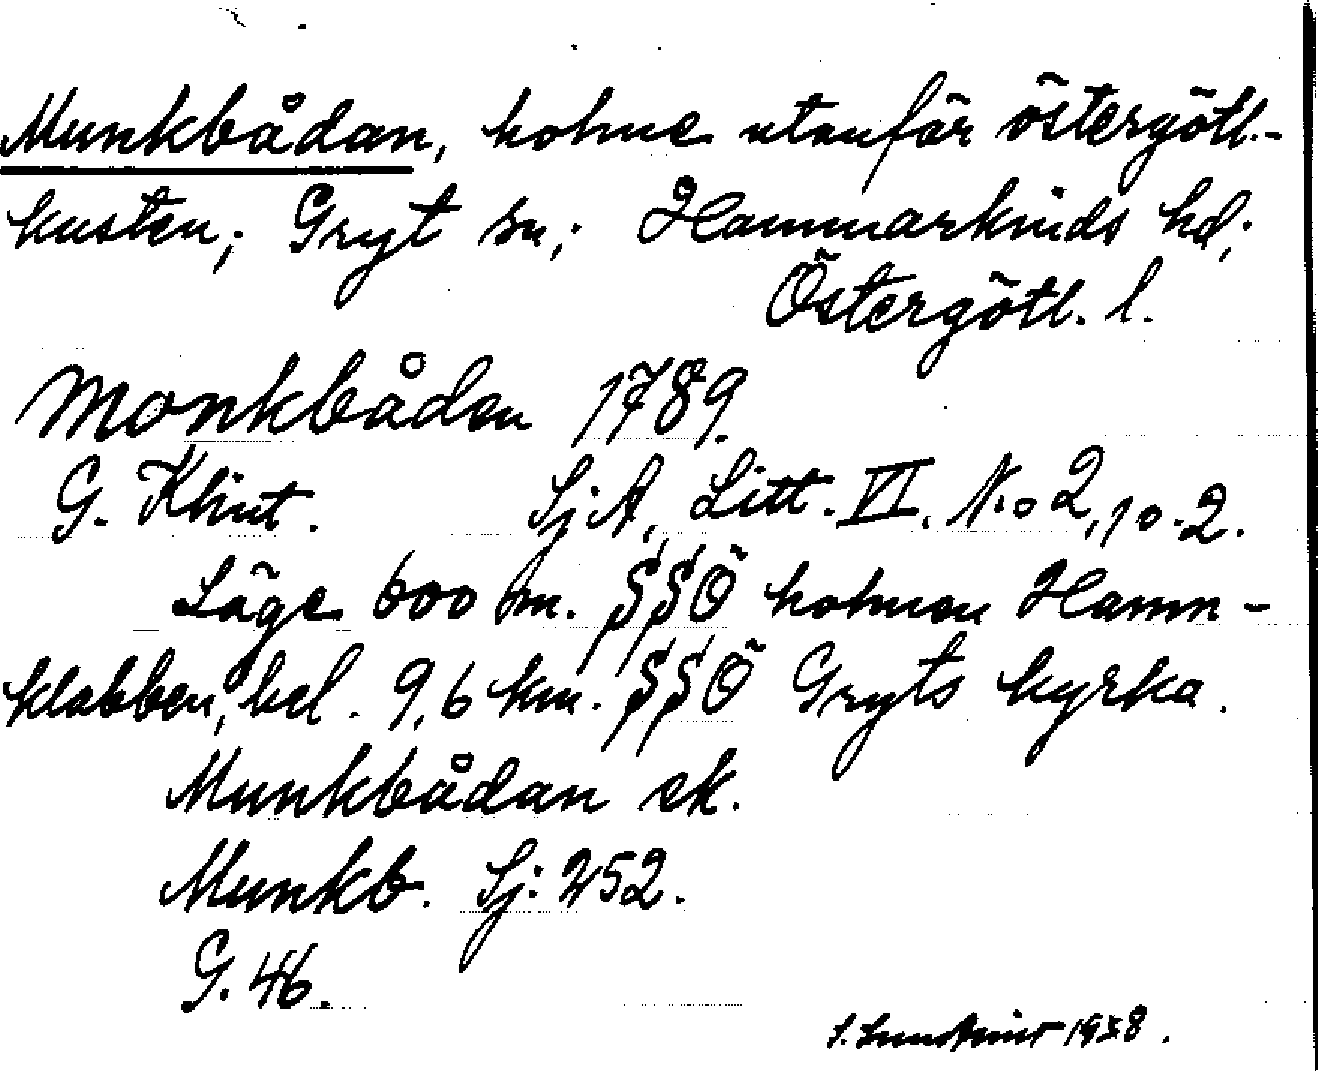 Munkbådan, holme utanför östergötl.-
kusten; Gryt sn; Hammarkinds hd;
Östergötl. l.
Monkbåden 1789.
G. Klint. SjA, Litt. VI. No 2, 10.2.
Läge 600 m. SSÖ holmen Hamn-
klabben, bel. 9,6 km. SSÖ Gryts kyrka.
Munkbådan ek.
Munkb. Sj: 252.
G. 46.
1938.